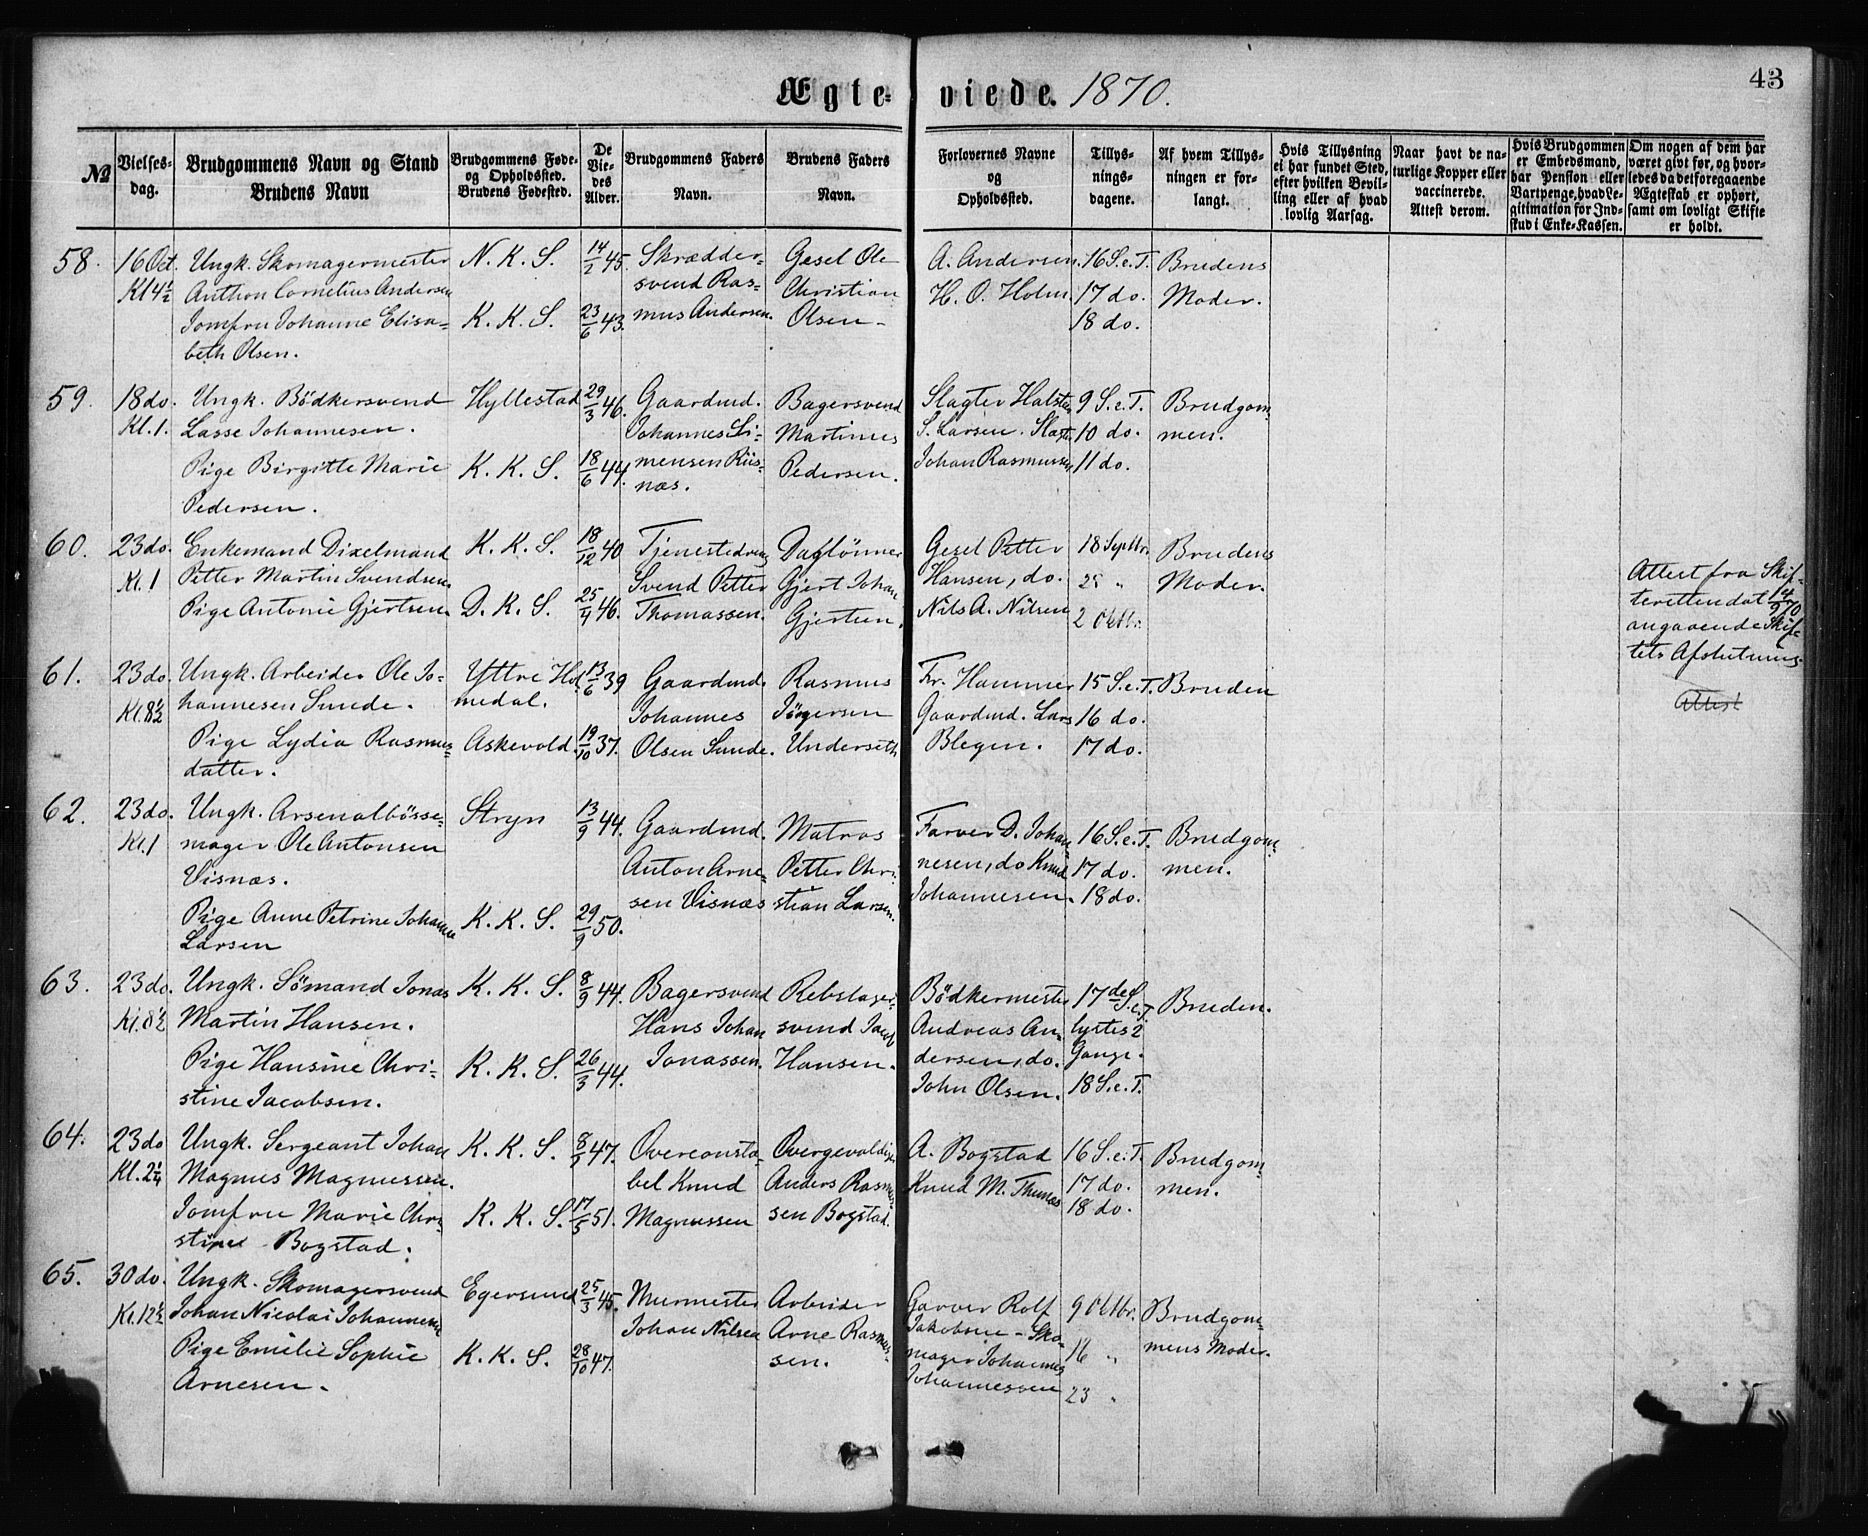 43
Ægteviede. 1870.
№
Vielsesdag.
Brudgommens Navn og Stand
Brudens Navn
Brudgommens Føde-
og Opholdssted.
Brudens Fødested.
De
Vie-
des
Alder.
Brudgommens Faders
Navn.
Brudens Faders
Navn.
Forlovernes Navne
og
Opholdssted.
Tillys-
nings-
dagene.
Af hvem Tillys-
ningen er for-
langt.
Hvis Tillysning
ei har fundet Sted,
efter hvilken Bevil-
ling eller af hvad
lovlig Aarsag.
Naar havt de na-
turlige Kopper eller
vaccinerede.
Attest derom.
Hvis Brudgommen
er Embedsmand,
har Pension eller
Vartpenge, hvad Le-
gitimation for Ind-
skud i Enke-Kassen.
Om nogen af dem har
været givt før, og hvor-
ledes da det foregaaende
Ægteskab er ophørt,
samt om lovligt Skifte
er holdt.
58.
16 Oct.
Kl 4½
Ungk. Skomagermester
Anthon Cornelius Andersen
Jomfru Johanne Elisa-
beth Olsen.
N. K. S.
K. K. S.
14/2 45.
23/6 43.
Skrædder-
svend Ras-
mus Andersen.
Gesel Ole
Christian
Olsen
A. Andersen
H. O. Holm.
16 S.e.T.
17 do.
18 do.
Brudens
Moder.
59.
18 do.
Kl. 1.
Ungk. Bödkersvend
Lasse Johannesen.
Pige Birgitte Marie
Pedersen.
Hyllestad
K. K. S.
29/3 46.
18/6 44.
Gaardmd.
Johannes Si-
mensen Riis-
næs.
Bagersvend
Martinus
Pedersen.
Slagter Halsten
S. Larsen. Slagt.
Johan Rasmussen
9 S.e.T.
10 do.
11 do.
Brudgom-
men.
60.
23 do.
Kl. 1
Enkemand Dixelmand
Petter Martin Svendsen
Pige Antonie Gjertsen.
K. K. S.
D. K. S.
18/12 40
25/4 46.
Tjenestedreng
Svend Petter
Thomassen.
Daglönner
Gjert Johan
Gjertsen.
Gesel Petter
Hansen, do.
Nils A. Nilsen
18 Septbr.
25 "
2 Oktbr.
Brudens
Moder.
Attest fra Skif-
teretten dat 14/9 70
angaaende Skif-
tets Afslutning.
Attest
61.
23 do.
Kl. 8½
Ungk. Arbeider Ole Jo-
hannesen Sunde.
Pige Lydia Rasmus-
datter.
Yttre Hol-
medal.
Askevold.
13/6 39
19/10 37.
Gaardmd.
Johannes
Olsen Sunde.
Rasmus
Jörgersen
Underseth
Fr. Hammer
Gaardmd. Lars
Blegen.
15 S.e.T.
16 do.
17 do.
Bruden
62.
23 do.
Kl. 1
Ungk. Arsenalbösse-
mager Ole Antonsen
Visnæs.
Pige Anne Petrine Johanne
Larsen
Stryn
K. K. S.
13/9 44.
29/9 50.
Gaardmd.
Anton Arne-
sen Visnæs
Matros
Petter Chri-
stian Larsen.
Farver D. Johan-
nesen, do Knud
Johannesen.
16 S.e.T.
17 do.
18 do.
Brudgom-
men.
63.
23 do.
Kl. 8½
Ungk. Sömand Jonas
Martin Hansen.
Pige Hansine Chri-
stine Jacobsen.
K. K. S.
K. K. S.
8/9 44.
26/3 44.
Bagersvend
Hans Johan
Jonassen.
Rebslager-
svend Jacob
Hansen.
Bödkermester
Andreas An-
dersen, do.
John Olsen.
17de S.e.T.
lystes 2
Gange.
18 S.e.T.
Bruden.
64.
23 do
Kl. 2¼
Ungk. Sergeant Johan
Magnus Magnussen.
Jomfru Marie Chri-
stine Bogstad.
K. K. S.
K. K. S.
47.
17/5 51.
Overconsta-
bel Knud
Magnussen
Overgevaldiger
Anders Rasmus-
sen Bogstad.
A. Bogstad
Knud M. Thunæs
16 S.e.T.
17 do.
18 do.
Brudgom-
men.
65.
30 do.
Kl. 12½
Ungk. Skomagersvend
Johan Nicolai Johannesen
Pige Emilie Sophie
Arnesen.
Egersund
K. K. S.
25/3 45.
28/10 47.
Murmester
Johan Nilsen
Arbeider
Arne Rasmus-
sen.
Garver Rolf
Jakobsen - Sko-
mager Johannes
Johannessen
9 Oktbr.
16 "
23 "
Brudgom-
mens Moder.